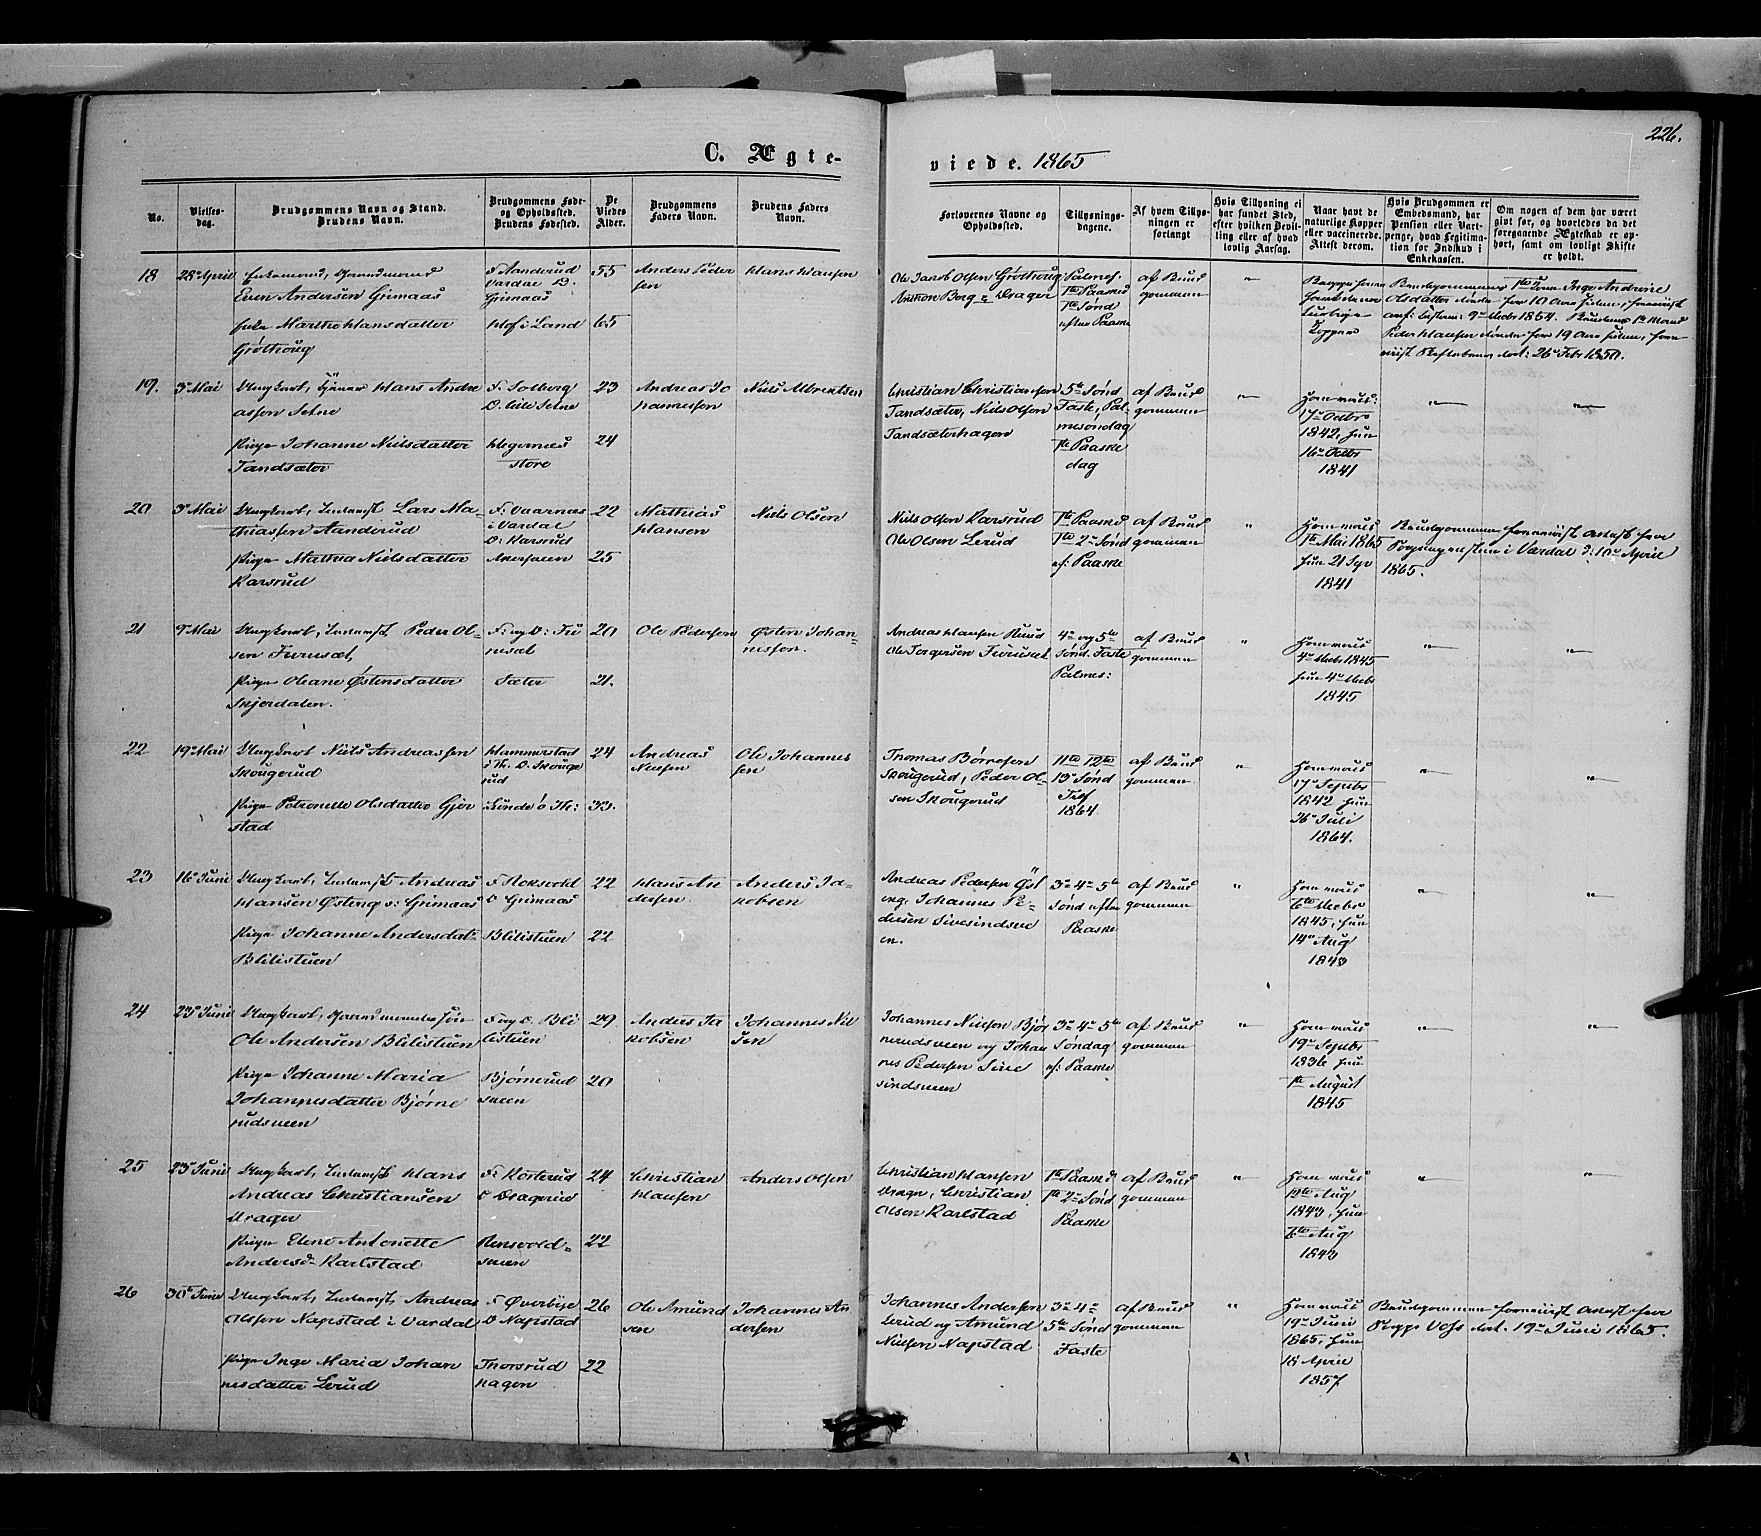 226.
C. Ægte-
viede. 1865
No.
Vielses-
dag.
Brudgommens Navn og Stand.
Brudens Navn.
Brudgommens Føde-
og Opholdssted.
Brudens Fødested.
De
Viedes
Alder.
Brudgommens
Faders Navn.
Brudens Faders
Navn.
Forlovernes Navne og
Opholdssted.
Tillysnings-
dagene.
Af hvem Tillys-
ningen er
forlangt
Hvis Tillysning ei
har fundet Sted,
efter hvilken Bevil-
ling eller af hvad
lovlig Aarsag.
Naar havt de
naturlige Kopper
eller vaccinerede.
Attest derom.
Hvis Brudgommen er
Embedsmand, har
Pension eller Vart-
penge, hvad Legitima-
tion for Indskud i
Enkekassen.
Om nogen af dem har været
givt før, og hvorledes da det
foregaaende Ægteskab er op-
hørt, samt om lovligt Skifte
er holdt.
18
28 April
Enkemand, Gaardmand
Even Andersen Grimaas
Enke Marthe Hansdatter
Grøthoug
F. Aanderud
Vardal O.
Grimaas
Hof i Land
55
65
Anders Peder
sen
Hans Hansen
Ole Jacob Olsen Grøthoug
Anthon Berg = Drager
Palmes.
1te Paasked
1te Sønd
efter Paaske
af Brud
gommen
"
Begge have
havt de natur
lige
Kopper
Brudgommens 1te Kone Inge Andrine
Olsdatter døde for 10 Aar siden, forevist
1854. Brudens 1te Mand
Peder Hansen døde for 19 Aar siden, fore
vist Skiftebrev dat: 26 Febr 1850.
19.
3 Mai
Ungkarl, Tjener Hans Andre
assen Setne
Pige Johanne Nielsdatter
Tandsæter
F. Solberg
O. lille Setne
Hegernæs
store
23
24
Andreas Jo
hannessen
Niels Albrektsen
Christian Christiansen
Tandsæter, Niels Olsen
Tandsæterhagen
5te Sønd
Faste, Pal-
mesøndag
1te Paaske
dag
af Brud
gommen
"
Han vacc:
17 Octbr
1842, hun
16 Octbr
1841
"
"
20
3 Mai
Ungkarl, Inderst Lars Ma-
thiassen Aanderud
Pige Mathea Nielsdatter
Karsrud
F. Vaarnæs
i Vardal
O: Karsrud
22
25
Mathias
Hansen
Niels Olsen
Niels Olsen Karsrud
Ole Olsen Lerud
1te Paasked
1te 2 Sønd
ef: Paaske
af Brud
gommen
"
Han vacc
1te Mai 1865
hun 21 Sep
1841
Brudgommen forevist Attest fra
Sognepresten i Vardal d: 10 April
1865.
21
9 Mai
Ungkarl, Inderst Peder Ol-
sen Furuset,
Pige Oleane Østensdatter
Skjerdalen.
F: og O: Fu
ruset
Sæter
20
21.
Ole Pedersen
Østen Johan-
nessen.
Andreas Hansen Ruud
Ole Torgersen Furuset
4 og 5te
Sønd. Faste
Palmes:
af Brud
gommen
"
Han vacc
4 Octbr 1845
hun 4 Octbr
1845
"
"
22
19 Mai
Ungkarl Niels Andreassen
Skougerud
Pige Petronelle Olsdatter Gjer
stad
Hammerstad
i Th: O. Skouge
rud
Sunde ø Th:
24
33.
Andreas
Nielsen
Ole Johannes
sen
Thomas Børresen
Skougerud, Peder Ol
sen Skougerud
11te 12te
13 Sønd
Tref
1864
af Brud
gommen
"
Han vacc
17 Septbr
1842 hun
26 Juli
1864.
"
"
23
16 Juni
Ungkarl, Inderst Andreas
Hansen Østeng v: Grimaas
Pige Johanne Andersdat-
Blilistuen
F. Roksvold
O Grimaas
Blilistuen
22
22
Hans An
dersen
Anders Ja-
kobsen
Andreas Pedersen Øst
eng, Johannes Pe-
dersen Sivesindsve
en.
3 4 5te
Sønd efter
Paaske
af Brud
gommen
"
Han vacc
6te Octbr
1845, hun
14 Aug
1843
"
"
24
23 Juni
Ungkarl, Gaardmandssøn
Ole Andersen Blilistuen
Pige Johanne Maria
Johannesdatter Bjørne
rudsveen
F. og O. Bli
listuen
Bjørnerud
sveen
29
20
Anders Ja
kobsen
Johannes Niel
sen
Johannes Nielsen Bjør
nerudsveen og Johan
nes Pedersen Sive
sindsveen
3 4 5te
Søndag
ef: Paaske
af Brud
gommen
"
Han vacc
19 Septbr
1836 hun
1te August
1845
"
"
25
23 Juni
Ungkarl, Inderst Hans
Andreas Christiansen
Drager
Pige Elene Antonette
Andersd Karlstad
F. Kosterud
O Dragerud
Rensvold-
sveen
24
22
Christian
Hansen
Anders Olsen
Christian Hansen
Drager, Christian
Olsen Karlstad
1te Paasked
1te 2 Sønd
Paaske
af Brud
gommen
"
Han vacc
Aug
1843, hun
6te Aug
1843
"
"
26
30 Juni
Ungkarl, Inderst, Andreas
Olsen Napstad i Vardal
Pige Inge Maria Johan
nesdatter Lerud
F Øverbye
O Napstad
Thorsrud
hagen
26
22
Ole Amund
sen
Johannes An
dersen
Johannes Andersen
Lerud og Amund
Nielsen Napstad
3 4
5te Sønd
Faste
af Brud
gommen
"
Han vacc
19 Juni
1865, hun
18 April
1857
Brudgommen forevist Attest fra
dat. 19 Juni 1865.